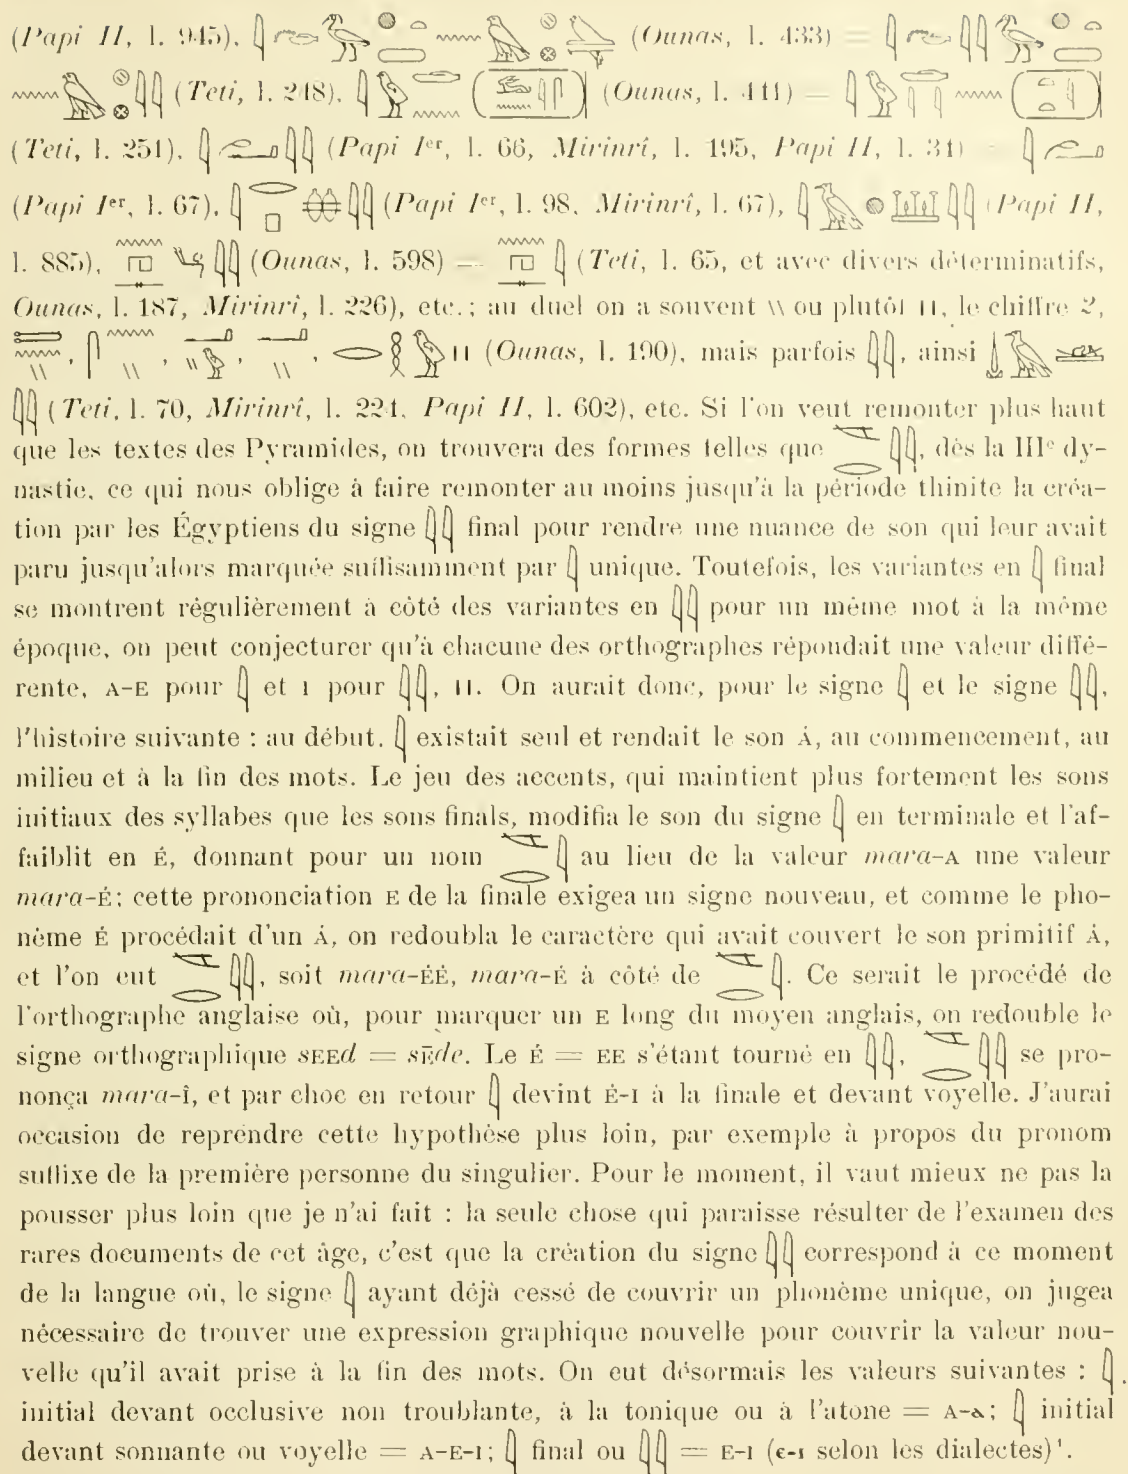 (Papi II, l. 945), 𓇋𓆑𓅡𓐍𓏏𓈇𓈖𓅓𓐍𓊖 (Ounas, l. 433) = 𓇋𓆑𓇋𓇋𓅡𓐍𓏏𓈇
𓈖𓅓𓐍𓊖𓇋𓇋 (Teti, l. 248), 𓇋𓅱𓂋𓈖 (𓃹𓈖𓇋𓋴) (Ounas, l. 441) = 𓇋𓅱𓈖 (𓏏𓏏𓇋)
(Teti, l. 251), 𓇋𓂝𓇋𓇋 (Papi Iᵉʳ, l. 66, Mirinrî, l. 195, Papi II, l. 31) = 𓇋𓂝
(Papi Iᵉʳ, l. 67), 𓇋𓂋𓊪𓇋𓇋 (Papi Iᵉʳ, l. 98, Mirinrî, l. 67), 𓇋𓄿𓐍𓇋𓇋 (Papi II,
l. 885), 𓈖𓉔𓇋𓇋 (Ounas, l. 598) = 𓈖𓉔𓇋 (Teti, l. 65, et avec divers déterminatifs,
Ounas, l. 187, Mirinrî, l. 226), etc.; au duel on a souvent \\ ou plutôt II, le chiffre 2,
𓈖\\, 𓋴𓈖\\, \\𓅱, \\, 𓂋𓎛𓅱II (Ounas, l. 190), mais parfois 𓇋𓇋, ainsi 𓅓
𓇋𓇋 (Teti, l. 70, Mirinrî, l. 224, Papi II, l. 602), etc. Si l'on veut remonter plus haut
que les textes des Pyramides, on trouvera des formes telles que 𓌸𓂋𓇋𓇋, dès la IIIᵉ dy-
nastie, ce qui nous oblige à faire remonter au moins jusqu'à la période thinite la créa-
tion par les Égyptiens du signe 𓇋𓇋 final pour rendre une nuance de son qui leur avait
paru jusqu'alors marquée suffisamment par 𓇋 unique. Toutefois, les variantes en 𓇋 final
se montrent régulièrement à côté des variantes en 𓇋𓇋 pour un même mot à la même
époque, on peut conjecturer qu'à chacune des orthographes répondait une valeur diffé-
rente, A-E pour 𓇋 et I pour 𓇋𓇋, II. On aurait donc, pour le signe 𓇋 et le signe 𓇋𓇋,
l'histoire suivante : au début, 𓇋 existait seul et rendait le son Á, au commencement, au
milieu et à la fin des mots. Le jeu des accents, qui maintient plus fortement les sons
initiaux des syllabes que les sons finals, modifia le son du signe 𓇋 en terminale et l'af-
faiblit en É, donnant pour un nom 𓌸𓂋𓇋 au lieu de la valeur mara-A une valeur
mara-É; cette prononciation E de la finale exigea un signe nouveau, et comme le pho-
nème É procédait d'un Á, on redoubla le caractère qui avait couvert le son primitif Á,
et l'on eut 𓌸𓂋𓇋𓇋, soit mara-ÉÉ, mara-É à côté de 𓌸𓂋𓇋. Ce serait le procédé de
l'orthographe anglaise où, pour marquer un E long du moyen anglais, on redouble le
signe orthographique sEEd = sēde. Le É = EE s'étant tourné en 𓇋𓇋, 𓌸𓂋𓇋𓇋 se pro-
nonça mara-î, et par choc en retour 𓇋 devint É-I à la finale et devant voyelle. J'aurai
occasion de reprendre cette hypothèse plus loin, par exemple à propos du pronom
suffixe de la première personne du singulier. Pour le moment, il vaut mieux ne pas la
pousser plus loin que je n'ai fait : la seule chose qui paraisse résulter de l'examen des
rares documents de cet âge, c'est que la création du signe 𓇋𓇋 correspond à ce moment
de la langue où, le signe 𓇋 ayant déjà cessé de couvrir un phonème unique, on jugea
nécessaire de trouver une expression graphique nouvelle pour couvrir la valeur nou-
velle qu'il avait prise à la fin des mots. On eut désormais les valeurs suivantes : 𓇋,
initial devant occlusive non troublante, à la tonique ou à l'atone = A-ⲁ; 𓇋 initial
devant sonnante ou voyelle = A-E-I; 𓇋 final ou 𓇋𓇋 = E-I (ⲉ-ⲓ selon les dialectes)¹.